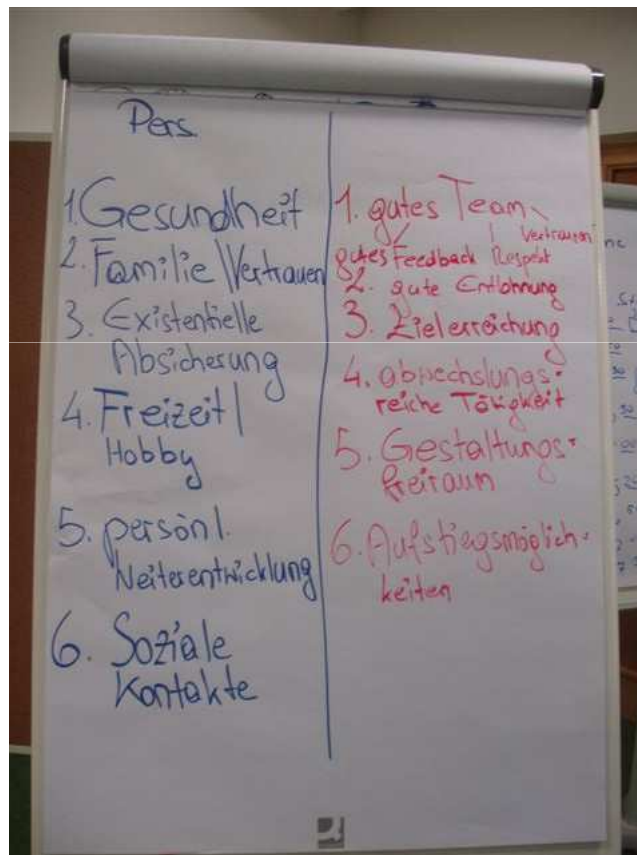 Pers.
1. Gesundheit
2. Familie/Vertrauen
3. Existentielle
Absicherung
4. Freizeit/
Hobby
5. persönl.
Weiterentwicklung
6. Soziale
Kontakte
1. gutes Team
Vertrauen
gutes Feedback Respekt
2. gute Entlohnung
3. Zielerreichung
4. abwechslungs-
reiche Tätigkeit
5. Gestaltungs-
freiraum
6. Aufstiegsmöglich-
keiten